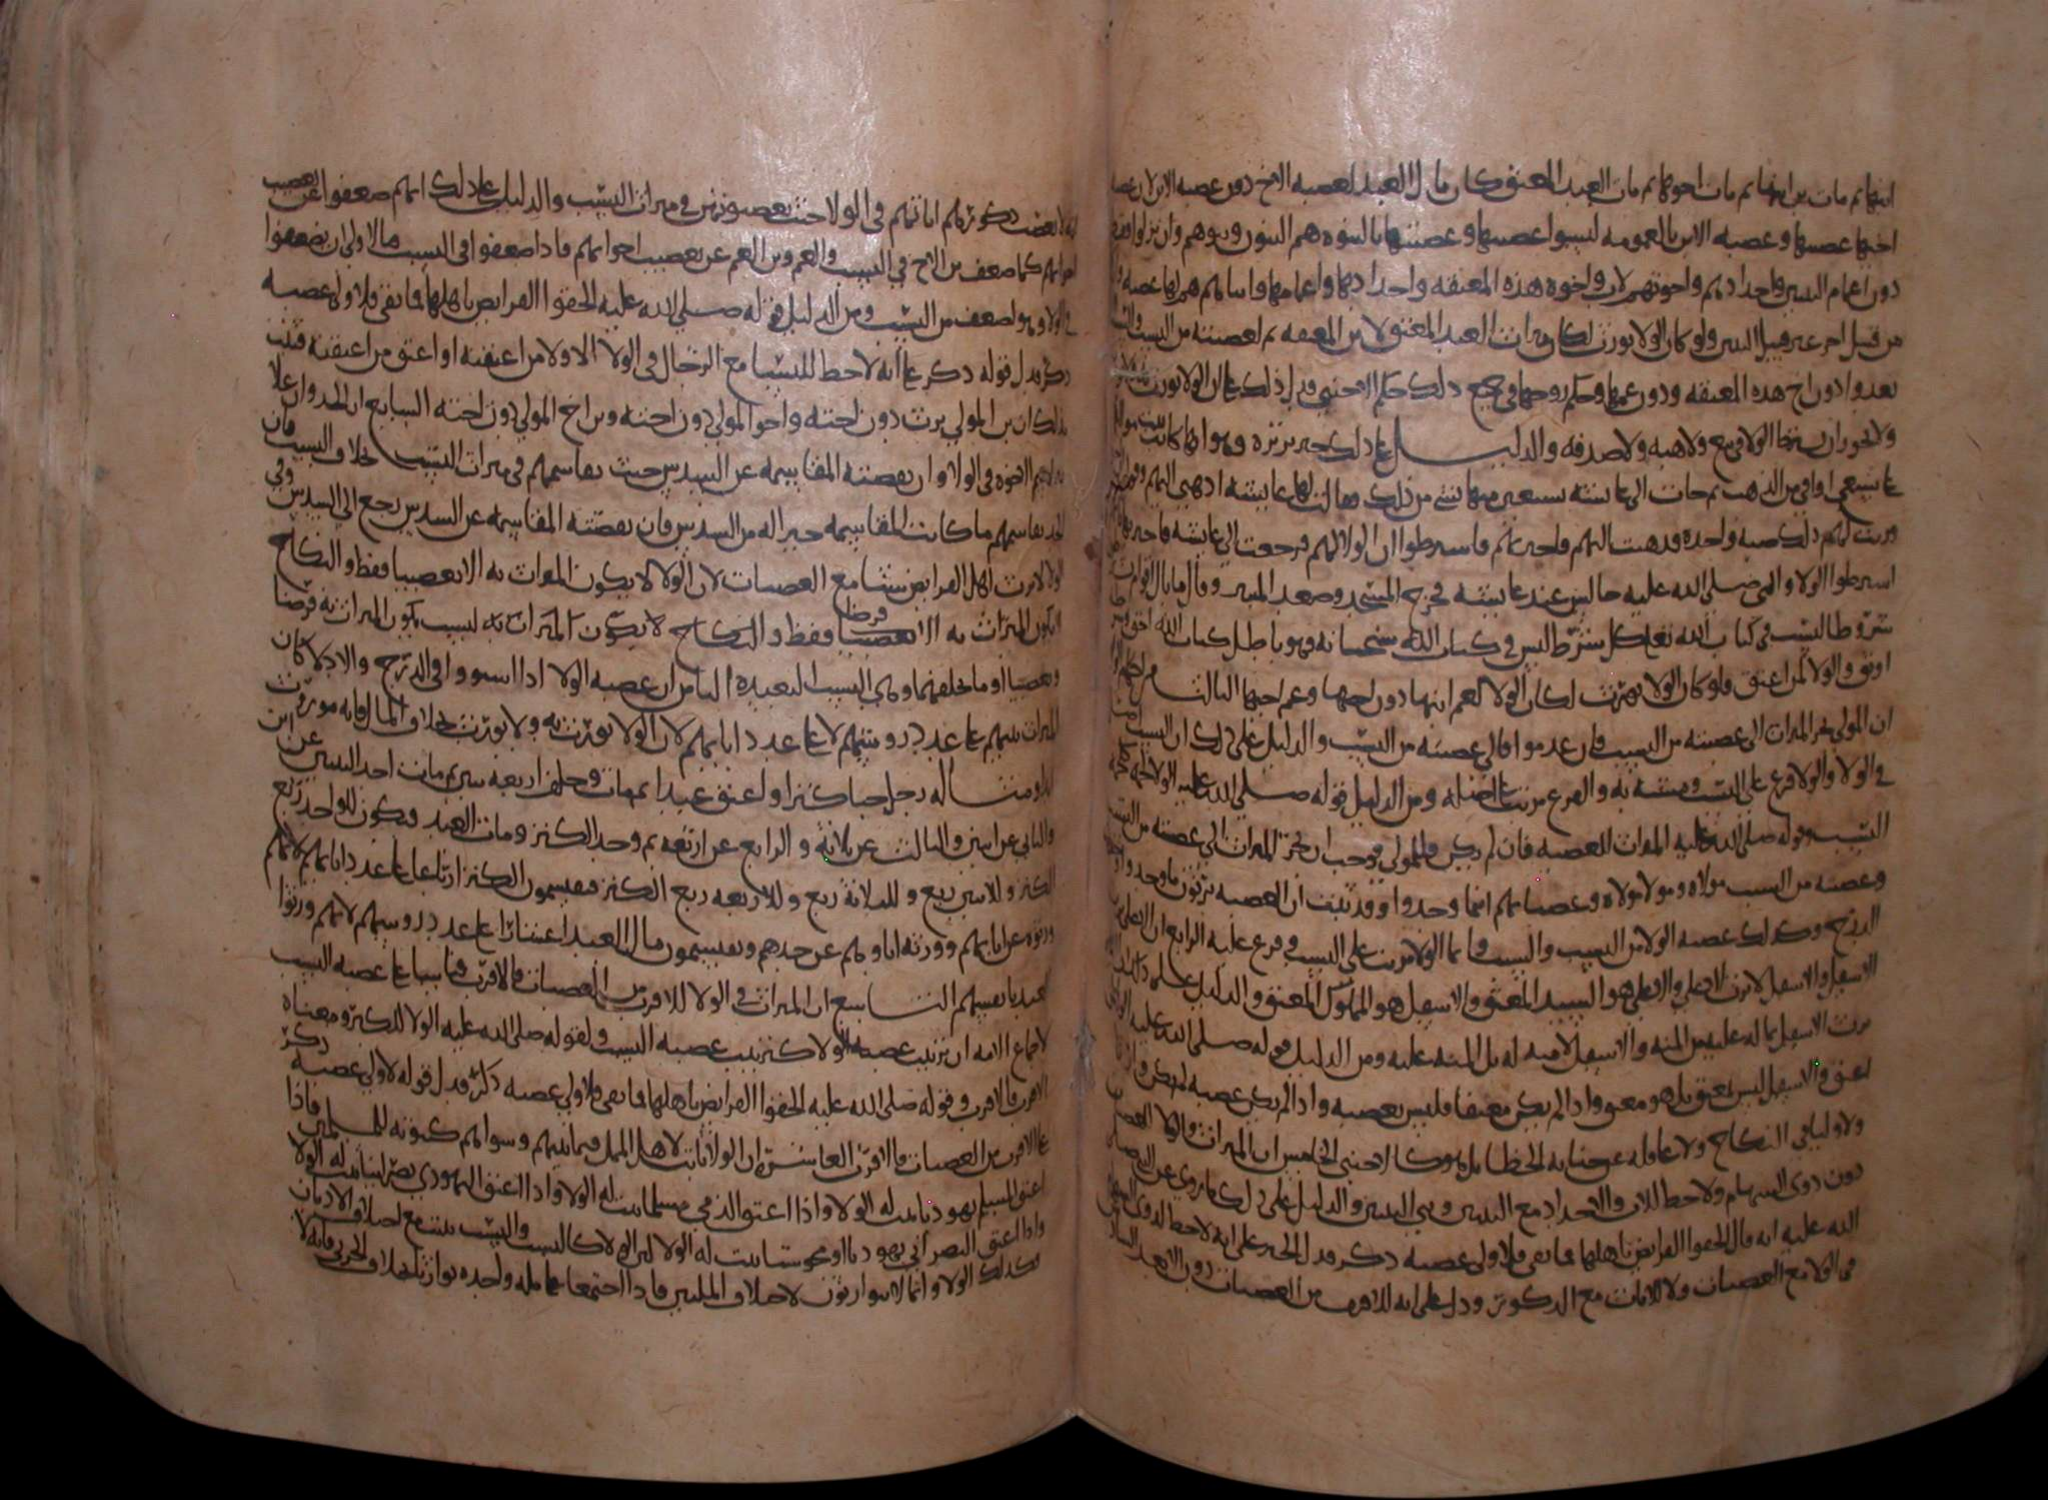 ابنها ثم مات بن ابنها ثم مات اخوها ثم مات العبد المعتق كان مال العبد لعصبه الاخ دون عصبه الابن لان عصبه
اخيها عصبتها وعصبه الابن بالعمومه ليسوا عصبتها وعصبتها بالبنوه هم البنون وبنوهم وان نزلوا فقط
دون اعمام البنين واجدادهم واخوتهم لاب واخوه هذه المعتقه واجدادها واعمامها وابناوهم هم لها عصبه
من قبيل اخر غير قبيل البنين ولو كان الولا يورث لكان ميراث العبد المعتق لابن المعتقه ثم لعصبته من النسب
بعده دون اخ هذه المعتقه ودون عمها وحكم زوجها في جميع ذلك حكم الاجنبي فدل ذلك على ان الولا يورث
ولا يجوز ان يملك الولا في بيع ولا هبه ولا صدقه والدليل على ذلك خبر بريره وهو انها كاتبت
على تسعي اواقي من الذهب ثم جات الى عايشه تستعين منها بشي من ذلك فقالت لها عايشه اذهبي اليهم
وزنت لهم ذلك صبه واحده فذهبت اليهم واخبرتهم فاشترطوا ان الولا لهم فرجعت الى عايشه فاخبرتها
اشترطوا الولا والنبي صلى الله عليه جالس عند عايشه فخرج المسجد وصعد المنبر وقال ما بال اقوام
شروطا ليست في كتاب الله تعلى كل شرط ليس في كتاب الله سبحانه فهو باطل كتاب الله احق
اوثق والولا لمن اعتق فلو كان الولا يورث لكان الولا لعم ابنها دون اخيها وعم اخيها الثالث
ان المولى يجر الميراث الى عصبته من النسب فان عدموا فالى عصبته من النسب والدليل على ذلك ان النسب
في الولا والولا فرع على النسب ومشبه به والفرع مرتب على اصله ومن الدليل قوله صلى الله عليه الولا لحمه كلحمه
النسب وقوله صلى الله عليه الميراث للعصبه فان لم يكن فللمولى فوجب ان يجر الميراث الى عصبته من النسب
وعصبته من السبب مولاه ومولا مولاه وعصباتهم اينما وجدوا وقد ثبت ان العصبه يرثون ما وجدوا
الدرج وكذلك عصبه الولا من النسب والسبب وانما الولا مرتب على النسب وفرع عليه الرابع ان الاعلى يرث
الاسفل والاسفل لا يرث الاعلى والاعلى هو السيد المعتق والاسفل هو المملوك المعتق والدليل على ذلك
يرث الاسفل بما له عليه من المنه والاسفل لا منه له بل المنه عليه ومن الدليل قوله صلى الله عليه الولا لمن
اعتق والاسفل ليس بمعتق بل هو معتق واذا لم يكن معتقا فليس بعصبه واذا لم يكن عصبه لم يكن
ولا وليا في النكاح ولا عاقله عن جنايه الخطا بل هو كالاجنبي الخامس ان الميراث بالولا للعصبات
دون ذوي السهام ولا حظ للاب والاجداد مع البنين وبني البنين والدليل على ذلك ما روي عن النبي صلى
الله عليه انه قال الحقوا الفرايض باهلها فما بقي فلاولى عصبه ذكر فدل الخبر على انه لا حظ لذوي السهام
في الولا مع العصبات ولا للاناث مع الذكور ودل على انه للاقرب من العصبات دون الابعد السادس
انه لا يعصب ذكورهم اناثهم في الولا حيث يعصبونهن في ميراث النسب والدليل على ذلك انهم ضعفوا عن تعصيب
اخواتهم كما ضعف بن الاخ في النسب والعم وبن العم عن تعصيب اخواتهم فاذا ضعفوا في النسب فالاولى ان يضعفوا
في الولا وهو اضعف من النسب ومن الدليل قوله صلى الله عليه الحقوا الفرايض باهلها فما بقي فلاولى عصبه
ذكر فدل قوله ذكر على انه لا حظ للنسا مع الرجال في الولا الا ولا من اعتقنه او اعتق من اعتقنه فثبت
بذلك ان بن المولى يرث دون اخته واخو المولى دون اخته وبن اخ المولى دون اخته السابع ان الجد وان علا
يقاسم الاخوه في الولا وان نقصته المقاسمه عن السدس حيث يقاسمهم في ميراث النسب بخلاف النسب فان
الجد يقاسمهم ما كانت المقاسمه خيرا له من السدس فان نقصته المقاسمه عن السدس رجع الى السدس وفي
الولا لا يرث اهل الفرايض شيئا مع العصبات لان الولا لا يكون الميراث به الا تعصيبا فقط والنكاح
لا يكون الميراث به الا فرضا فقط والنكاح لا يكون الميراث به لسبب يكون الميراث به فرضا
وتعصيبا وما خلفهما وهي النسب البعيده الثامن ان عصبه الولا اذا استووا في الدرج والادلا كان
الميراث بينهم على عدد روسهم لا على عدد ابايهم لان الولا يورث به ولا يورث بخلاف المال فانه موروث
له ومثاله رجل خبا كنزا واعتق عبدا ثم مات وخلف اربعه بنين ثم مات احد البنين عن ابن
والثاني عن ابنين والثالث عن ثلاثه والرابع عن اربعه ثم وجد الكنز ومات العبد فيكون للواحد ربع
الكنز وللاثنين ربع وللثلاثه ربع وللاربعه ربع الكنز فيقسمون الكنز ارباعا على عدد ابايهم لانهم
ورثوه عن ابايهم وورثه اباوهم عن جدهم ويقسمون مال العبد اعشارا على عدد روسهم لانهم ورثوا
العبد بانفسهم التاسع ان الميراث في الولا للاقرب من العصبات فالاقرب قياسا على عصبه النسب
لاجماع الامه ان ترتيب عصبه الولا كترتيب عصبه النسب ولقوله صلى الله عليه الولا للكبر ومعناه
الاقرب فالاقرب وقوله صلى الله عليه الحقوا الفرايض باهلها فما بقي فلاولى عصبه ذكر فدل قوله لاولى عصبه ذكر
على الاقرب من العصبات فالاقرب العاشر ان الولا ثابت لاهل الملل فيما بينهم وسواهم كثبوته للمسلمين فاذا
اعتق المسلم يهوديا ثبت له الولا واذا اعتق الذمي مسلما ثبت له الولا واذا اعتق اليهودي نصرانيا ثبت له الولا
واذا اعتق النصراني يهوديا او مجوسيا ثبت له الولا لان الولا كالنسب والنسب يثبت مع اختلاف الاديان
فكذلك الولا وانما لا يتوارثون لاختلاف الملتين فاذا اجتمعا على مله واحده توارثا بخلاف الحربي فانه لا